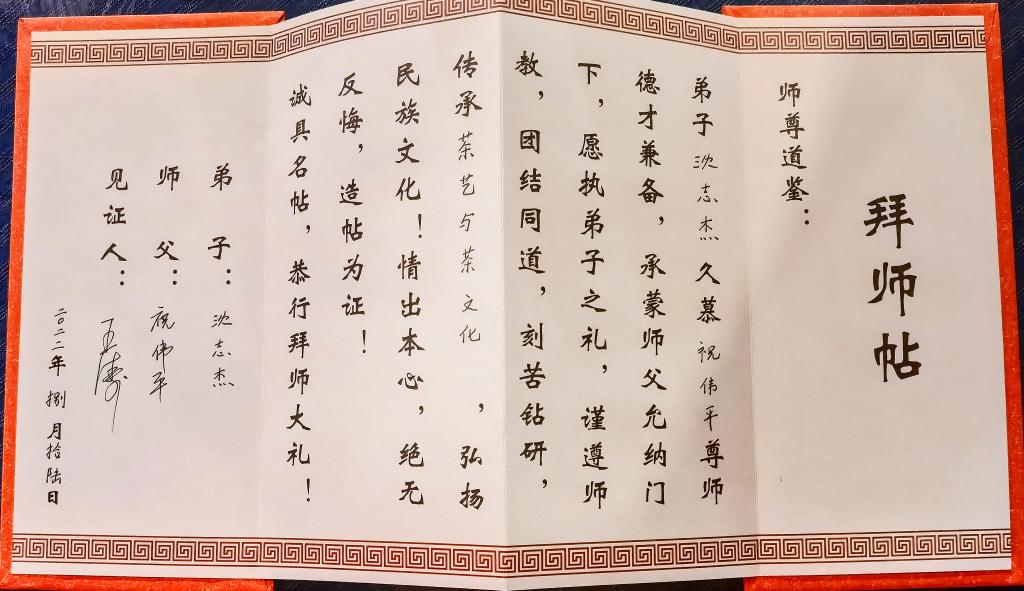 拜师帖
师尊道鉴：
弟子沈志杰久慕祝伟平尊师
德才兼备，承蒙师父允纳门
下，愿执弟子之礼，谨遵师
教，团结同道，刻苦钻研，
传承茶艺与茶文化，弘扬
民族文化！情出本心，绝无
反悔，造帖为证！
诚具名帖，恭行拜师大礼！
弟子：沈志杰
师父：祝伟平
见证人：
二〇二二年捌月拾陆日